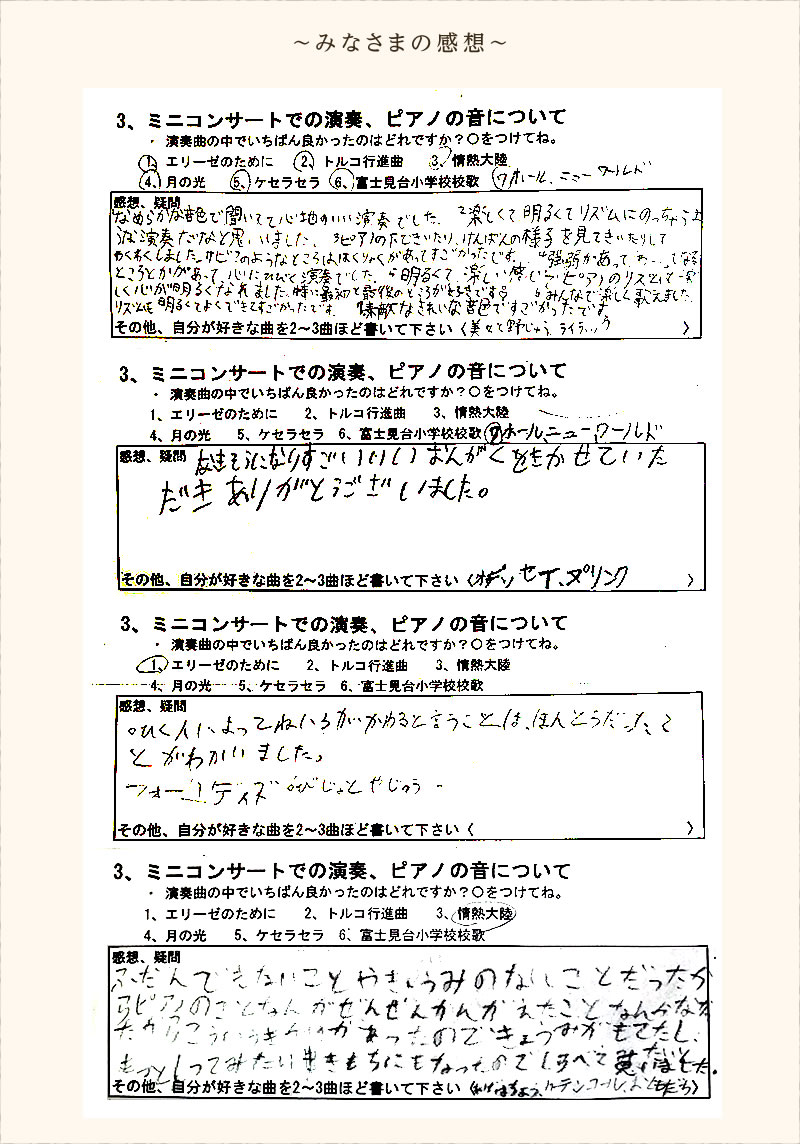 ～みなさまの感想～
3、ミニコンサートでの演奏、ピアノの音について
・ 演奏曲の中でいちばん良かったのはどれですか？○をつけてね。
1、エリーゼのために 2、トルコ行進曲 3、情熱大陸
4、月の光 5、ケセラセラ 6、富士見台小学校校歌 7ホール、ニューワールド
感想、疑問
なめらかな音色で聞いてて心地がいい演奏でした。2楽しくて明るくてリズムにのっちゃうよ
うな演奏だなと思いました。3ピアノの下できいたり、けんばんの様子を見てきいたりして
わくわくしました。サビのようなところははくりょくがあってすごかったです。4強弱があって
ところとかがあって、心にひびく演奏でした。5明るくて楽しい感じで、ピアノのリズムで
心が明るくなれました。特に最初と最後のところが好きです。6みんなで楽しく歌えました。
リズムも明るくてよくできてすごかったです。素敵なきれいな音色ですごかったです
その他、自分が好きな曲を2～3曲ほど書いて下さい〈美女と野じゅう、ライラック 〉
3、ミニコンサートでの演奏、ピアノの音について
・ 演奏曲の中でいちばん良かったのはどれですか？○をつけてね。
1、エリーゼのために 2、トルコ行進曲 3、情熱大陸
4、月の光 5、ケセラセラ 6、富士見台小学校校歌 7ホールニューワールド
感想、疑問 なきそうになりすごいいいおんがくをきかせていた
だきありがとうございました。
その他、自分が好きな曲を2～3曲ほど書いて下さい〈オデッセイ、 〉
3、ミニコンサートでの演奏、ピアノの音について
・ 演奏曲の中でいちばん良かったのはどれですか？○をつけてね。
1、エリーゼのために 2、トルコ行進曲 3、情熱大陸
4、月の光 5、ケセラセラ 6、富士見台小学校校歌
感想、疑問
○ひく人によってねいろがかわると言うことは、ほんとうだった
とがわかいました。
○びじょとやじゅう
その他、自分が好きな曲を2～3曲ほど書いて下さい〈 〉
3、ミニコンサートでの演奏、ピアノの音について
・ 演奏曲の中でいちばん良かったのはどれですか？○をつけてね。
1、エリーゼのために 2、トルコ行進曲 3、情熱大陸
4、月の光 5、ケセラセラ 6、富士見台小学校校歌
感想、疑問
ふだんできないことやきょうみのないことだったか
らピアノのことなんかぜんぜんかんがえたことなんかなか
たからこういうきかいがあったのできょうみがもてたし、
もっとしってみたい気もちにもなったのでしらべて
その他、自分が好きな曲を2～3曲ほど書いて下さい〈 カーテンコール、 〉